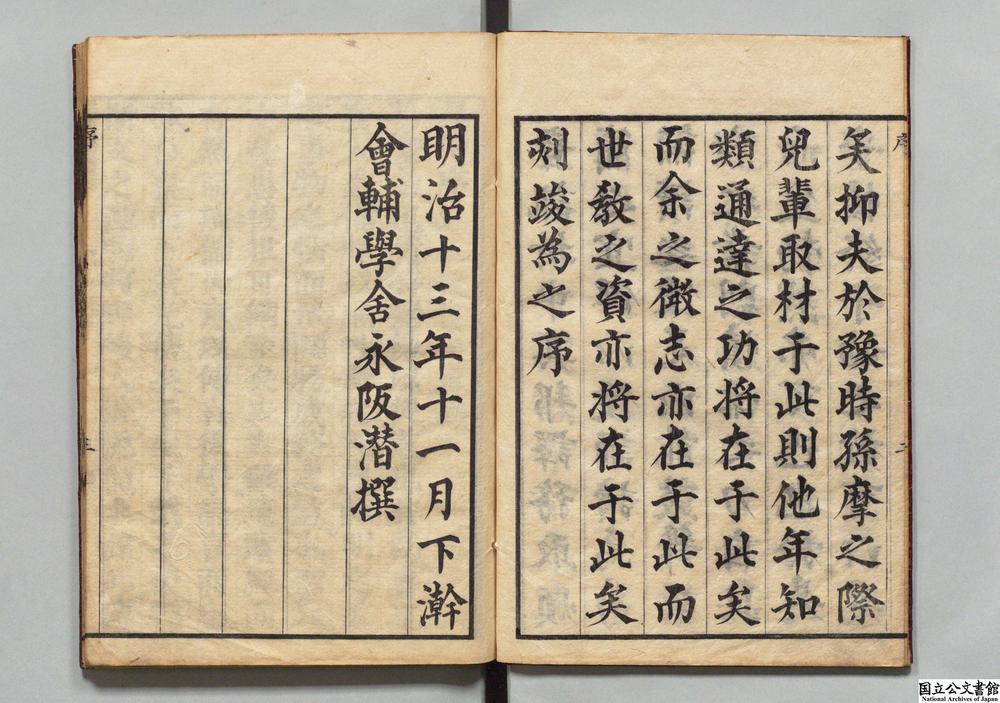 矣抑夫於豫時孫摩之際
兒輩取材于此則他年知
類通達之功将在于此矣
而余之微志亦在于此而
世敎之資亦将在于此矣
刻竣為之序
明治十三年十一月下澣
會輔學舍永阪潜撰
序
二
序
三
国立公文書館
National Archives of Japan